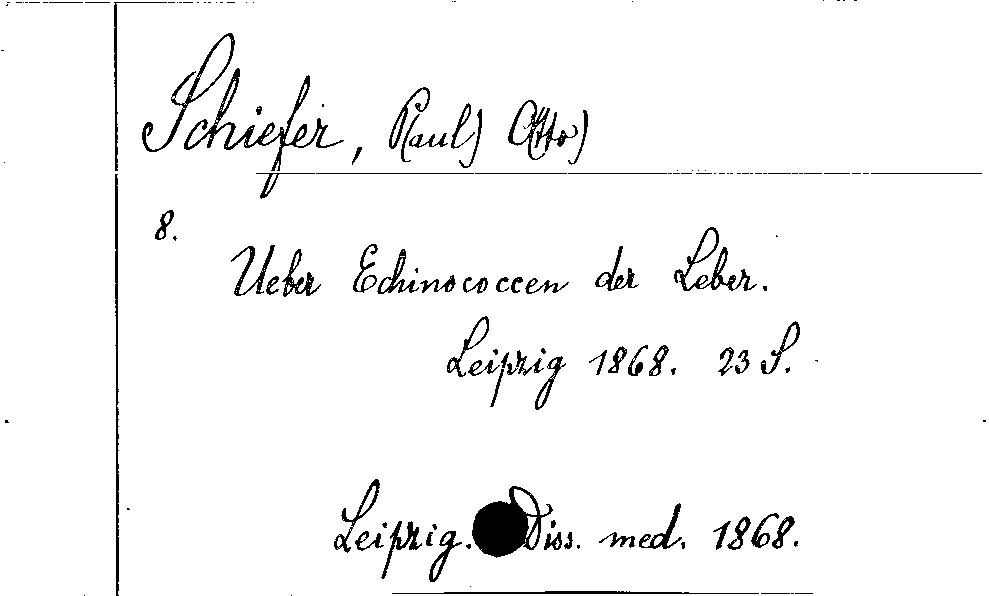 Schiefer, P(aul) O(tto)
8.
Ueber Echinococcen der Leber.
Leipzig 1868. 23 S.
Leipzig. Diss. med. 1868.